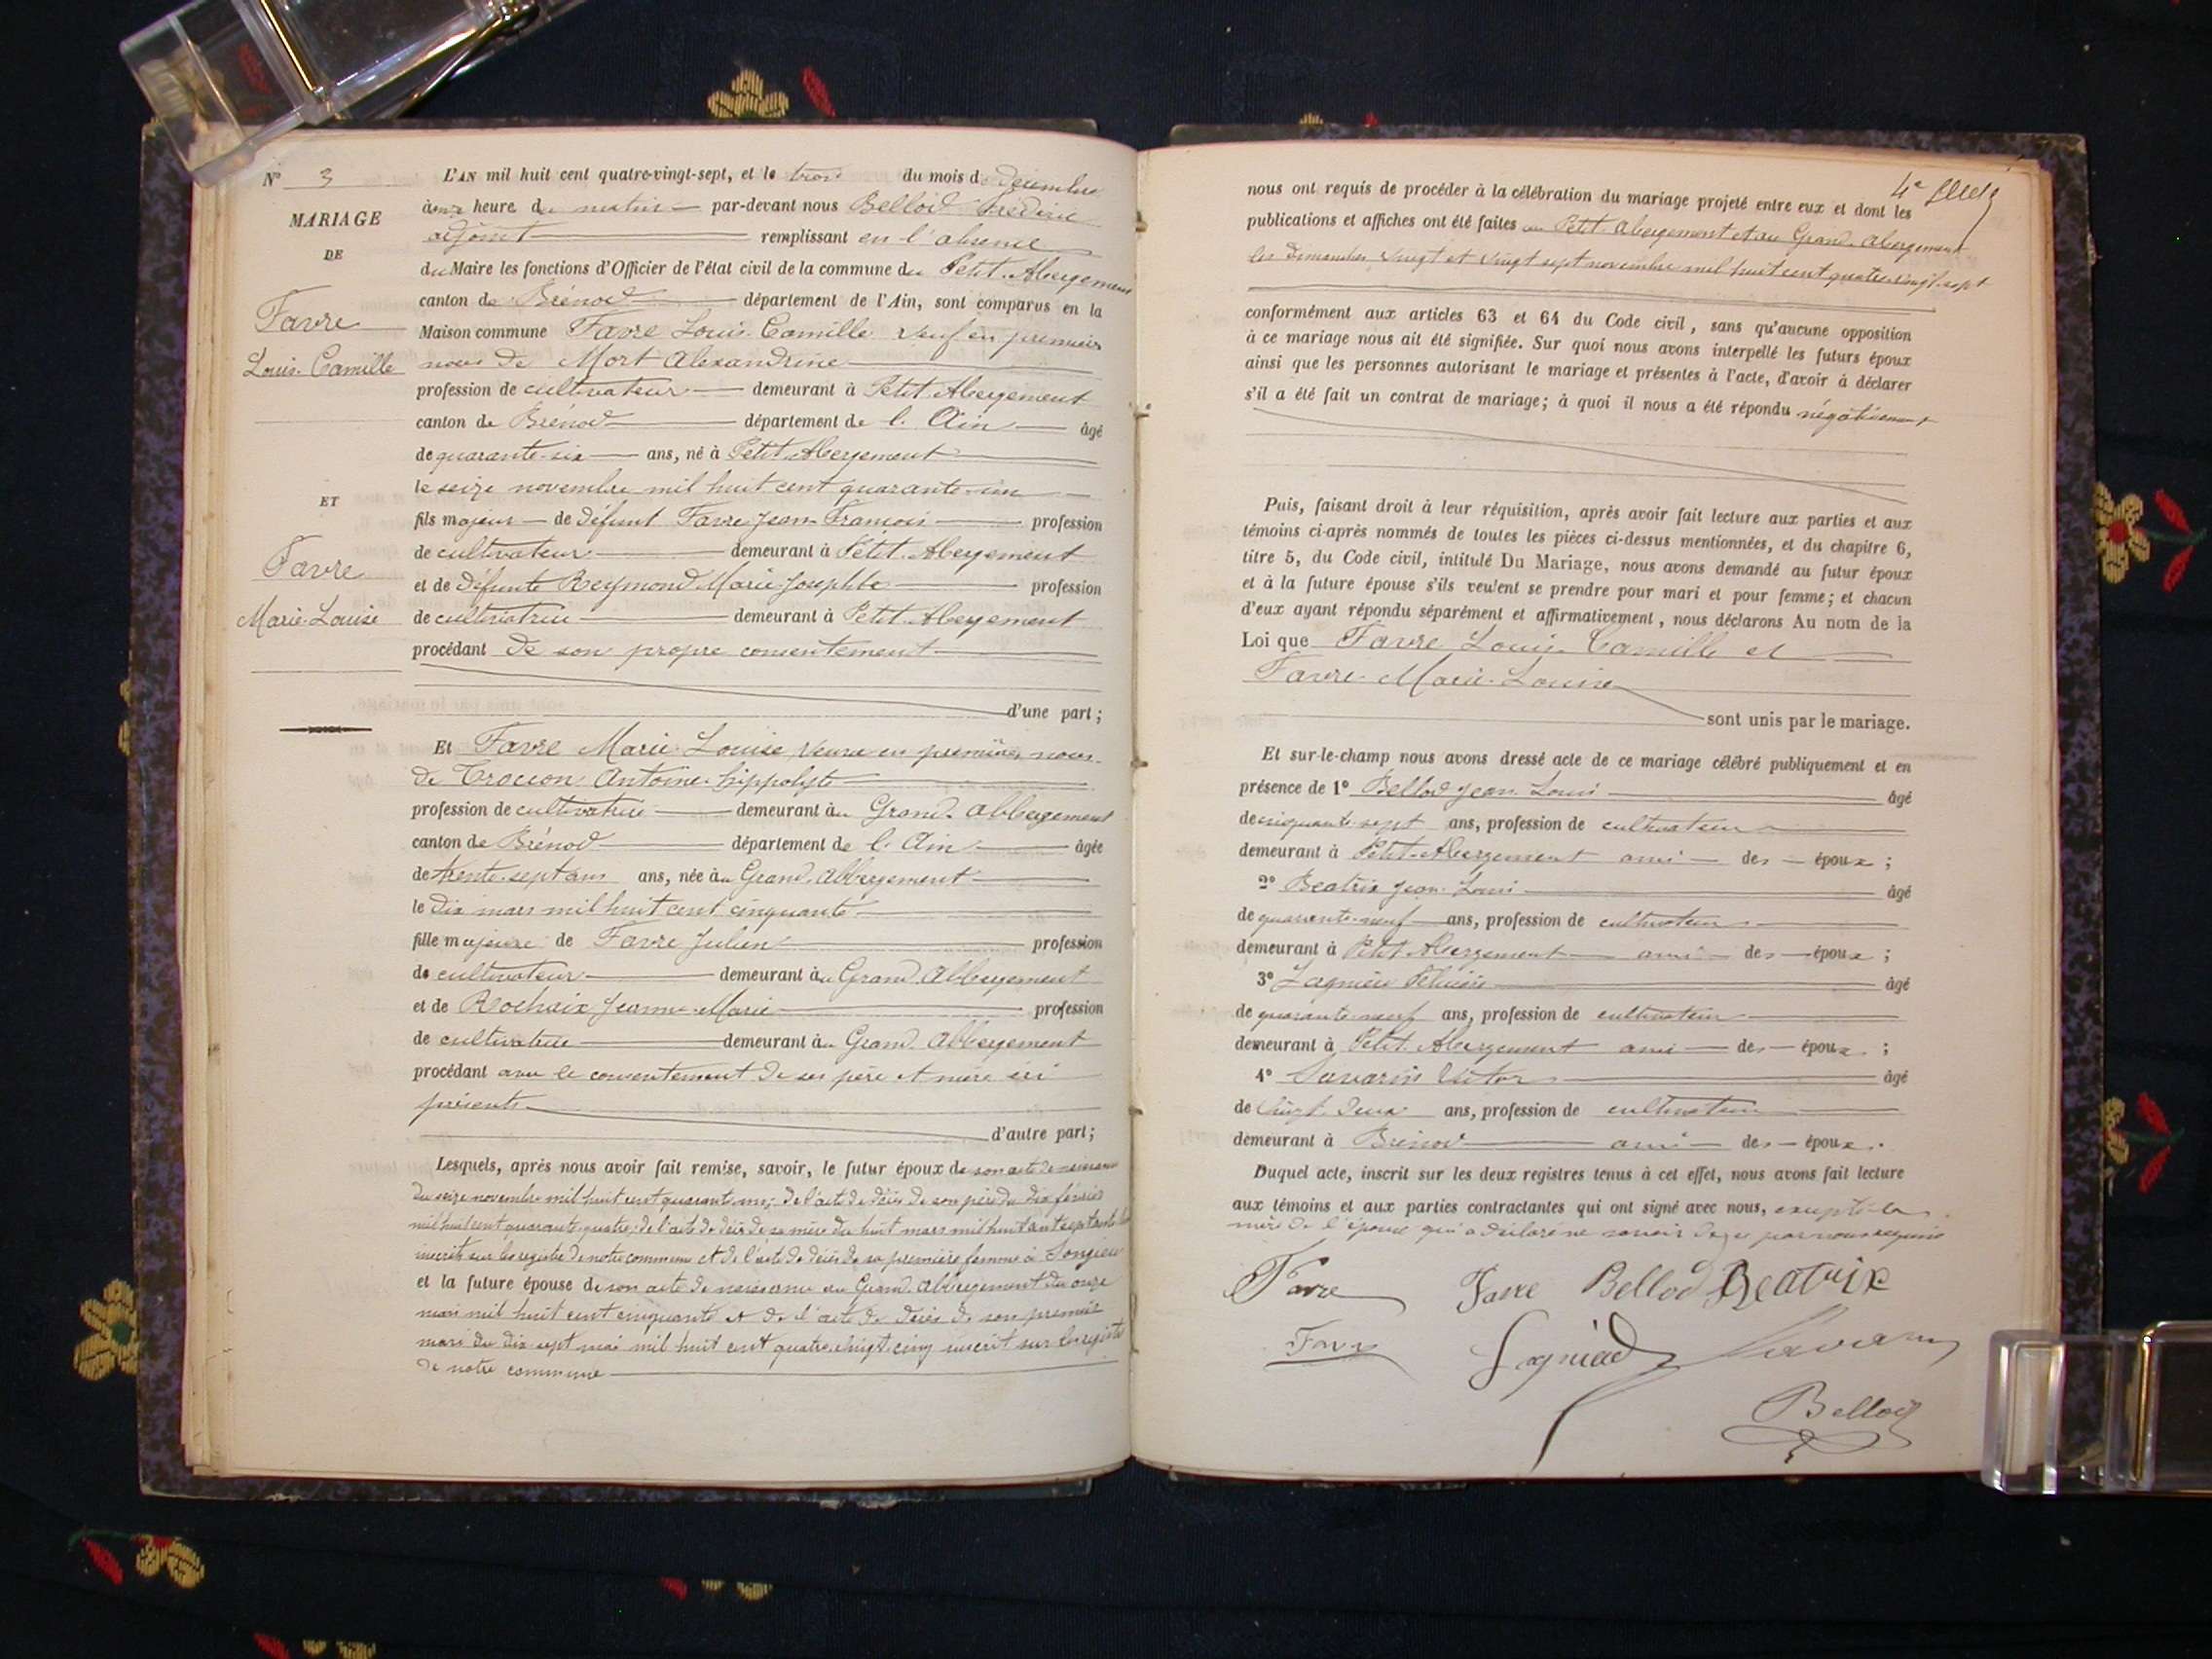 N° 3
MARIAGE
DE
Favre
Louis Camille
ET
Favre
Marie Louise
L'AN mil huit cent quatre-vingt-sept, et le trois du mois de décembre
à onze heure du matin par-devant nous Bellod Frédéric
adjoint remplissant en l'absence
du Maire les fonctions d'Officier de l'état civil de la commune du Petit Abergement
canton de Brénod département de l'Ain, sont comparus en la
Maison commune Favre Louis Camille veuf en premières
noces de Mort Alexandrine
profession de cultivateur demeurant à Petit Abergement
canton de Brénod département de l'Ain âgé
de quarante-six ans, né à Petit Abergement
le seize novembre mil huit cent quarante-un
fils majeur de défunt Favre Jean François profession
de cultivateur demeurant à Petit Abergement
et de défunte Reymond Marie Josephte profession
de cultivatrice demeurant à Petit Abergement
procédant de son propre consentement
d'une part;
Et Favre Marie Louise veuve en premières noces
de Troccon Antoine hippolyte
profession de cultivatrice demeurant au Grand Abbergement
canton de Brénod département de l'Ain âgée
de trente-sept ans ans, née au Grand Abbergement
le dix mars mil huit cent cinquante
fille majeure de Favre Julien profession
de cultivateur demeurant au Grand Abbergement
et de Rochaix Jeanne Marie profession
de cultivatrice demeurant au Grand Abbergement
procédant avec le consentement de ses père et mère ici
présents
d'autre part;
Lesquels, après nous avoir fait remise, savoir, le futur époux de son acte de naissance
du seize novembre mil huit cent quarante-un; de l'acte de décès de son père du dix février
mil huit cent quarante quatre; de l'acte de décès de sa mère du huit mars mil huit cent septante
inscrits sur les registre de notre commune et de l'acte de décès de sa première femme à Songieu
et la future épouse de son acte de naissance au Grand Abbergement du onze
mars mil huit cent cinquante et de l'acte de décès de son premier
mari du dix sept mai mil huit cent quatre-vingt-cinq inscrit sur les registre
de notre commune
4e
nous ont requis de procéder à la célébration du mariage projeté entre eux et dont les
publications et affiches ont été faites au Petit Abergement et au Grand Abergement
les dimanches vingt et vingt sept novembre mil huit cent quatre-vingt-sept
conformément aux articles 63 et 64 du Code civil, sans qu'aucune opposition
à ce mariage nous ait été signifiée. Sur quoi nous avons interpellé les futurs époux
ainsi que les personnes autorisant le mariage et présentes à l'acte, d'avoir à déclarer
s'il a été fait un contrat de mariage; à quoi il nous a été répondu négativement
Puis, faisant droit à leur réquisition, après avoir fait lecture aux parties et aux
témoins ci-après nommés de toutes les pièces ci-dessus mentionnées, et du chapitre 6,
titre 5, du Code civil, intitulé Du Mariage, nous avons demandé au futur époux
et à la future épouse s'ils veulent se prendre pour mari et pour femme; et chacun
d'eux ayant répondu séparément et affirmativement, nous déclarons Au nom de la
Loi que Favre Louis Camille et
Favre Marie Louise
sont unis par le mariage.
Et sur-le-champ nous avons dressé acte de ce mariage célébré publiquement et en
présence de 1° Bellod Jean Louis âgé
de cinquante-sept ans, profession de cultivateur
demeurant à Petit-Abergement ami des époux;
2° Beatrix Jean Louis âgé
de quarante-neuf ans, profession de cultivateur
demeurant à Petit Abergement ami des époux;
3° âgé
de quarante-neuf ans, profession de cultivateur
demeurant à Petit Abergement ami des époux;
4° Savarin Victor âgé
de vingt-deux ans, profession de cultivateur
demeurant à Brénod ami des époux.
Duquel acte, inscrit sur les deux registres tenus à cet effet, nous avons fait lecture
aux témoins et aux parties contractantes qui ont signé avec nous, excepté la
mère de l'épouse qui a déclaré ne savoir de ce par nous requise
Favre Favre Bellod Beatrix
Favre Savarin
Bellod